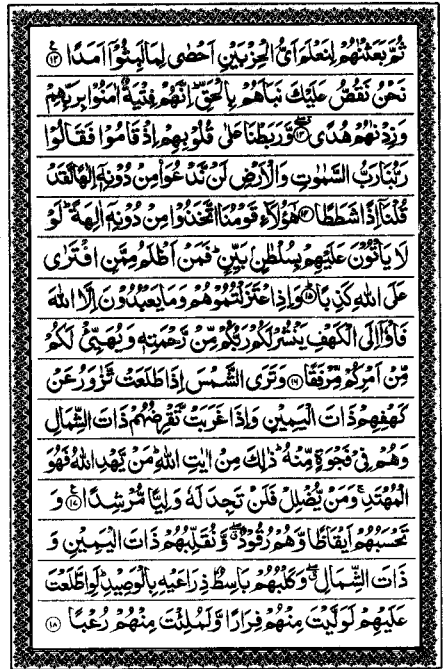 ثُمَّ بَعَثْنٰهُمْ لِنَعْلَمَ اَیُّ الْحِزْبَیْنِ اَحْصٰی لِمَا لَبِثُوْۤا اَمَدًا ﴿۱۲﴾
نَحْنُ نَقُصُّ عَلَیْكَ نَبَاَهُمْ بِالْحَقِّ ؕ اِنَّهُمْ فِتْیَةٌ اٰمَنُوْا بِرَبِّهِمْ
وَزِدْنٰهُمْ هُدًی ﴿۱۳﴾ وَّرَبَطْنَا عَلٰی قُلُوْبِهِمْ اِذْ قَامُوْا فَقَالُوْا
رَبُّنَا رَبُّ السَّمٰوٰتِ وَالْاَرْضِ لَنْ نَّدْعُوَا۟ مِنْ دُوْنِهٖۤ اِلٰهًا لَّقَدْ
قُلْنَاۤ اِذًا شَطَطًا ﴿۱۴﴾ هٰۤؤُلَآءِ قَوْمُنَا اتَّخَذُوْا مِنْ دُوْنِهٖۤ اٰلِهَةً ؕ لَوْ
لَا یَاْتُوْنَ عَلَیْهِمْ بِسُلْطٰنٍۭ بَیِّنٍ ؕ فَمَنْ اَظْلَمُ مِمَّنِ افْتَرٰی
عَلَی اللّٰهِ كَذِبًا ﴿۱۵﴾ وَاِذِ اعْتَزَلْتُمُوْهُمْ وَمَا یَعْبُدُوْنَ اِلَّا اللّٰهَ
فَاْوٗۤا اِلَی الْكَهْفِ یَنْشُرْ لَكُمْ رَبُّكُمْ مِّنْ رَّحْمَتِهٖ وَیُهَیِّئْ لَكُمْ
مِّنْ اَمْرِكُمْ مِّرْفَقًا ﴿۱۶﴾ وَتَرَی الشَّمْسَ اِذَا طَلَعَتْ تَّزٰوَرُ عَنْ
كَهْفِهِمْ ذَاتَ الْیَمِیْنِ وَاِذَا غَرَبَتْ تَّقْرِضُهُمْ ذَاتَ الشِّمَالِ
وَهُمْ فِیْ فَجْوَةٍ مِّنْهُ ؕ ذٰلِكَ مِنْ اٰیٰتِ اللّٰهِ ؕ مَنْ یَّهْدِ اللّٰهُ فَهُوَ
الْمُهْتَدِ ۚ وَمَنْ یُّضْلِلْ فَلَنْ تَجِدَ لَهٗ وَلِیًّا مُّرْشِدًا ﴿۱۷﴾ وَ
تَحْسَبُهُمْ اَیْقَاظًا وَّهُمْ رُقُوْدٌ ۖ وَّنُقَلِّبُهُمْ ذَاتَ الْیَمِیْنِ وَ
ذَاتَ الشِّمَالِ ۖ وَكَلْبُهُمْ بَاسِطٌ ذِرَاعَیْهِ بِالْوَصِیْدِ ؕ لَوِ اطَّلَعْتَ
عَلَیْهِمْ لَوَلَّیْتَ مِنْهُمْ فِرَارًا وَّلَمُلِئْتَ مِنْهُمْ رُعْبًا ﴿۱۸﴾